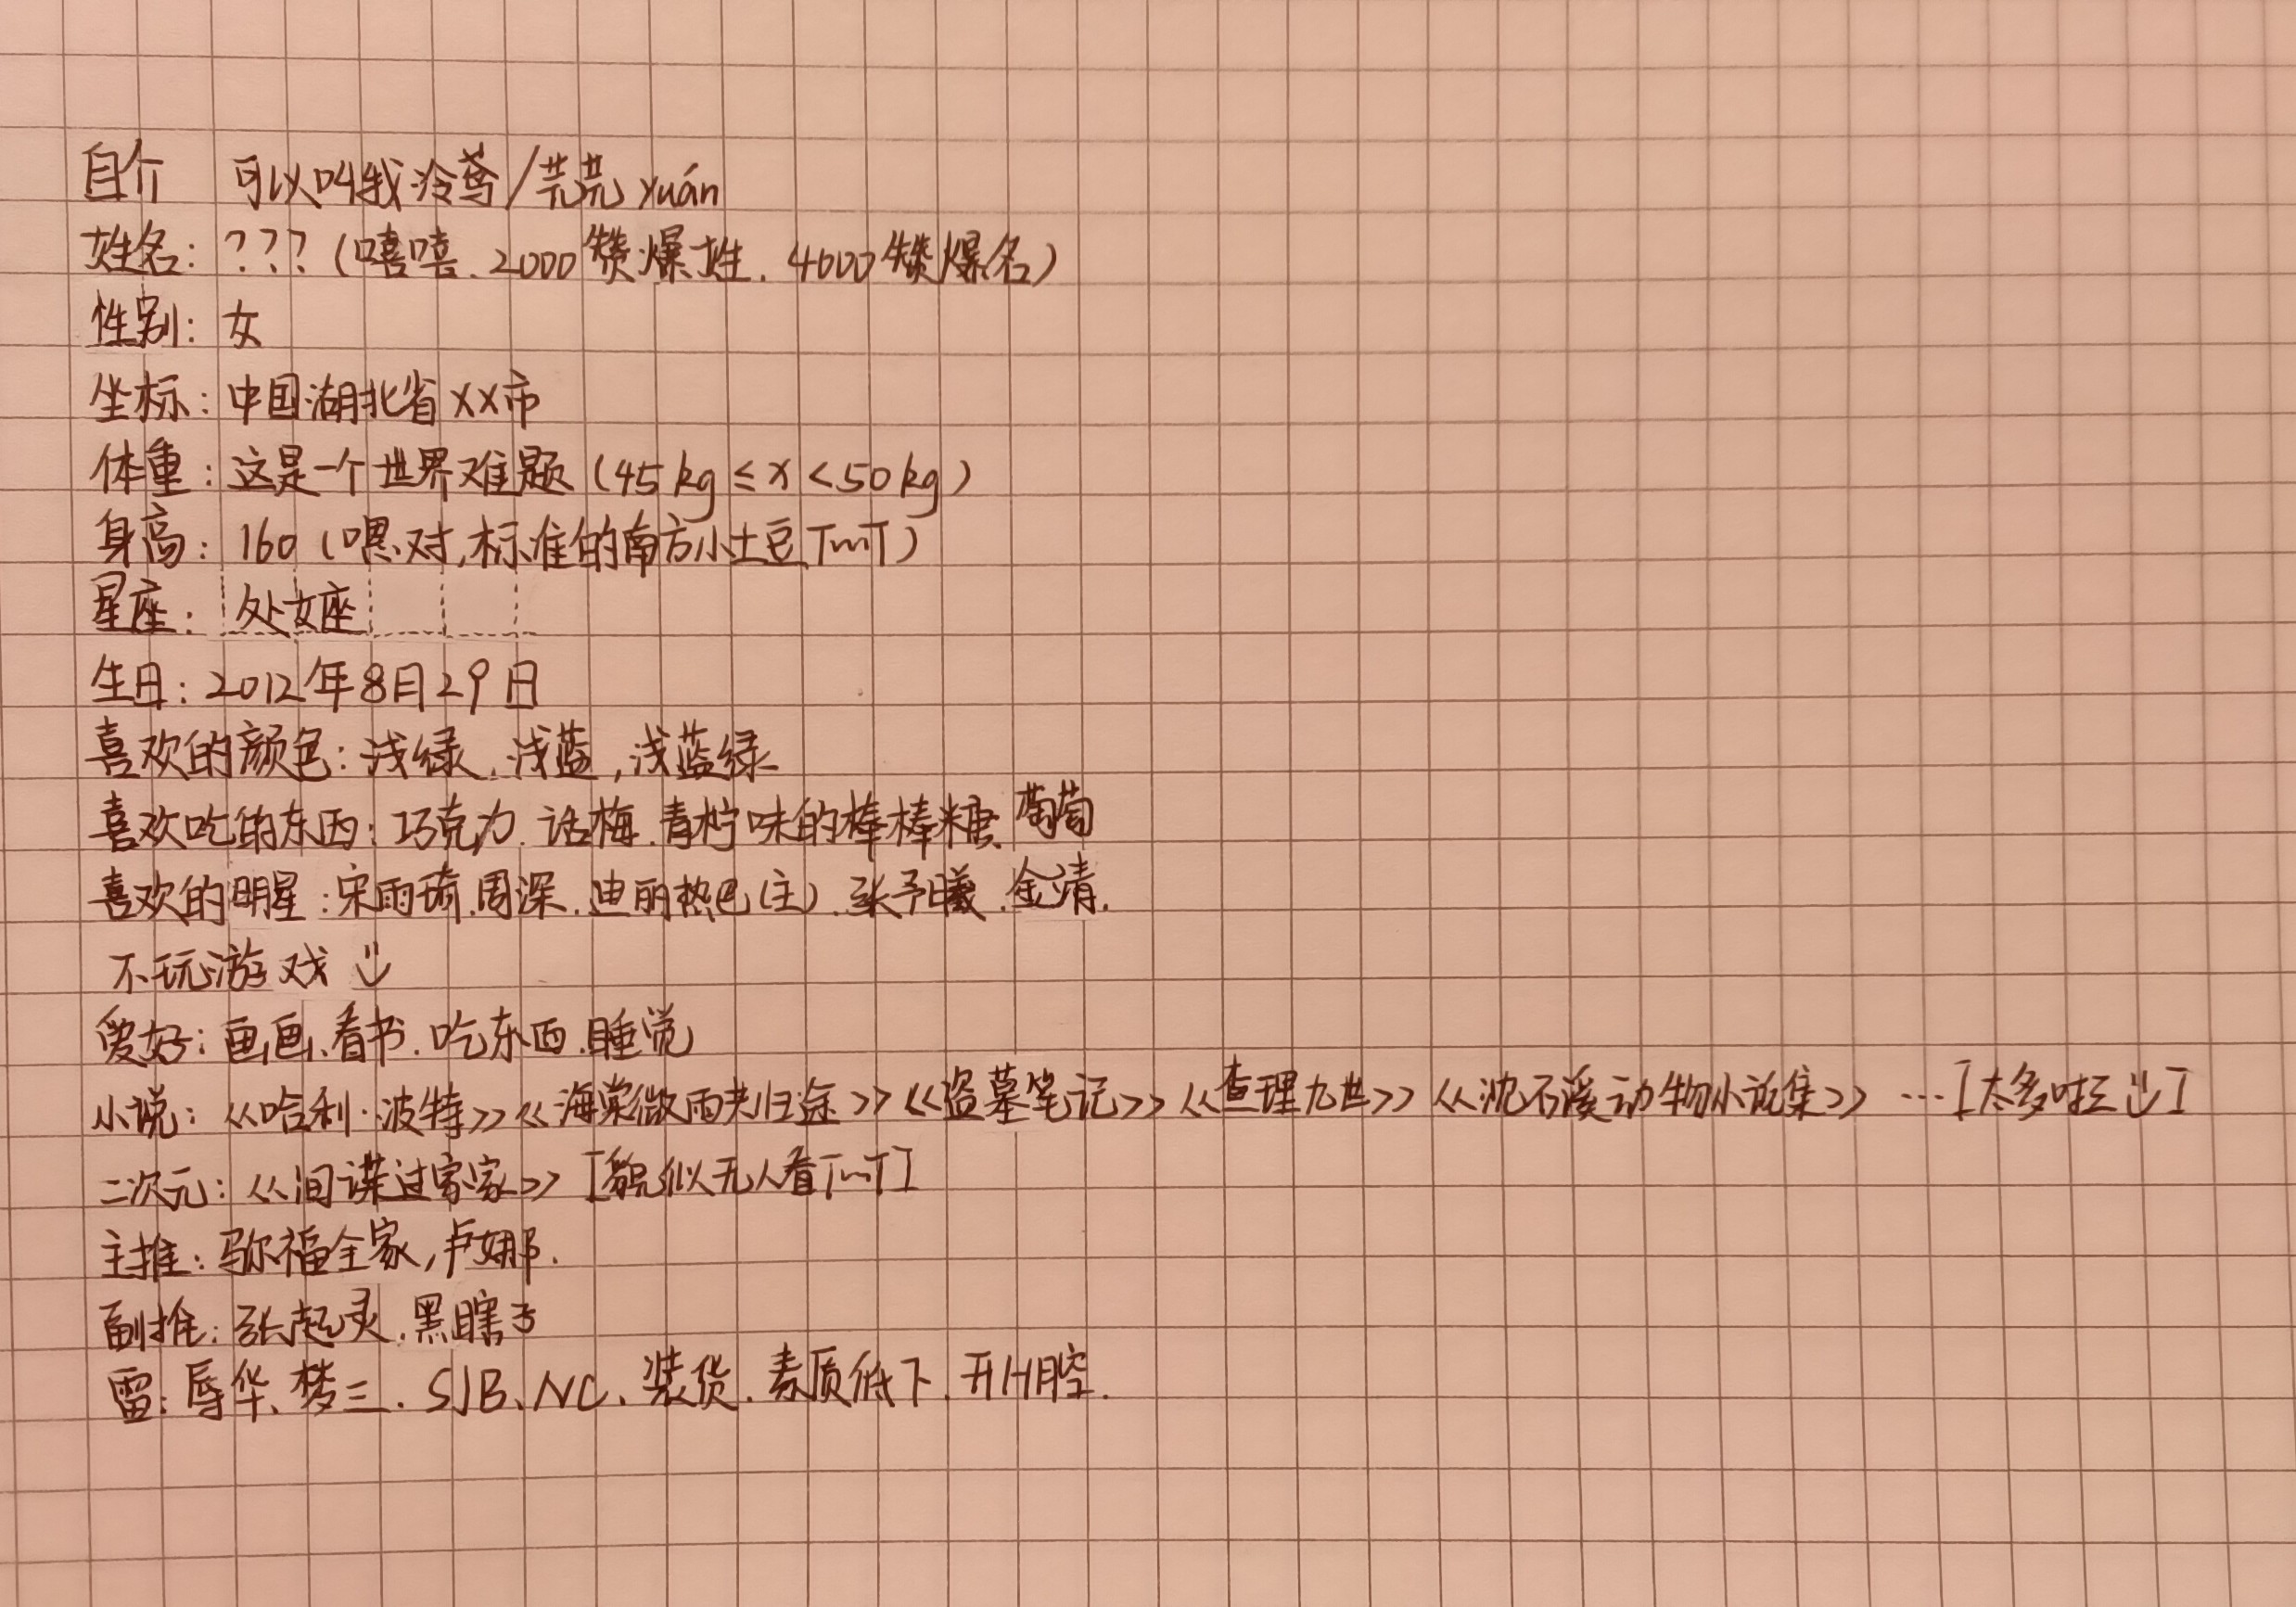 自介 可以叫我泠鸢/芫芫yuán
姓名:???(嘻嘻.2000赞爆姓.4600赞爆名)
性别:女
坐标:中国湖北省XX市
体重:这是一个世界难题(45kg≤x<50kg)
身高:160(嘿.对,标准的南方小土豆TmT)
星座:处女座
生日:2012年8月29日
喜欢的颜色:浅绿,浅蓝,浅蓝绿
喜欢吃的东西:巧克力.话梅.青柠味的棒棒糖.葡萄
喜欢的明星:宋雨琦.周深.迪丽热巴(主).张予曦.金靖.
不玩游戏
爱好:画画、看书.吃东西.睡觉
小说:《哈利·波特》《海棠微雨共归途》《盗墓笔记》《查理九世》《沈石溪动物小说集》…[太多啦]
二次元:《间谍过家家》[貌似无人看TmT]
主推:弥福全家,卢娜.
副推:张起灵.黑瞎子
雷:辱华、梦三.SJB、NC、装货.素质低下.开H腔.